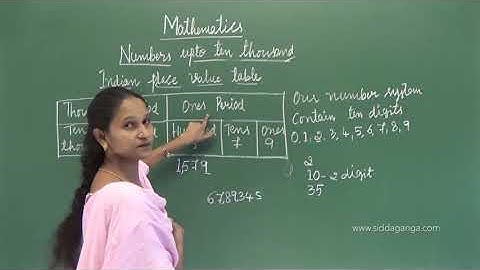 Mathematics
Numbers upto ten thousand
Indian place value table
Ones Period
Tens Ones
7 9
1579
6789345
Our number system
Contain ten digits
0, 1, 2, 3, 4, 5, 6, 7, 8, 9
2
10 - 2 digit
35
www.siddaganga.com